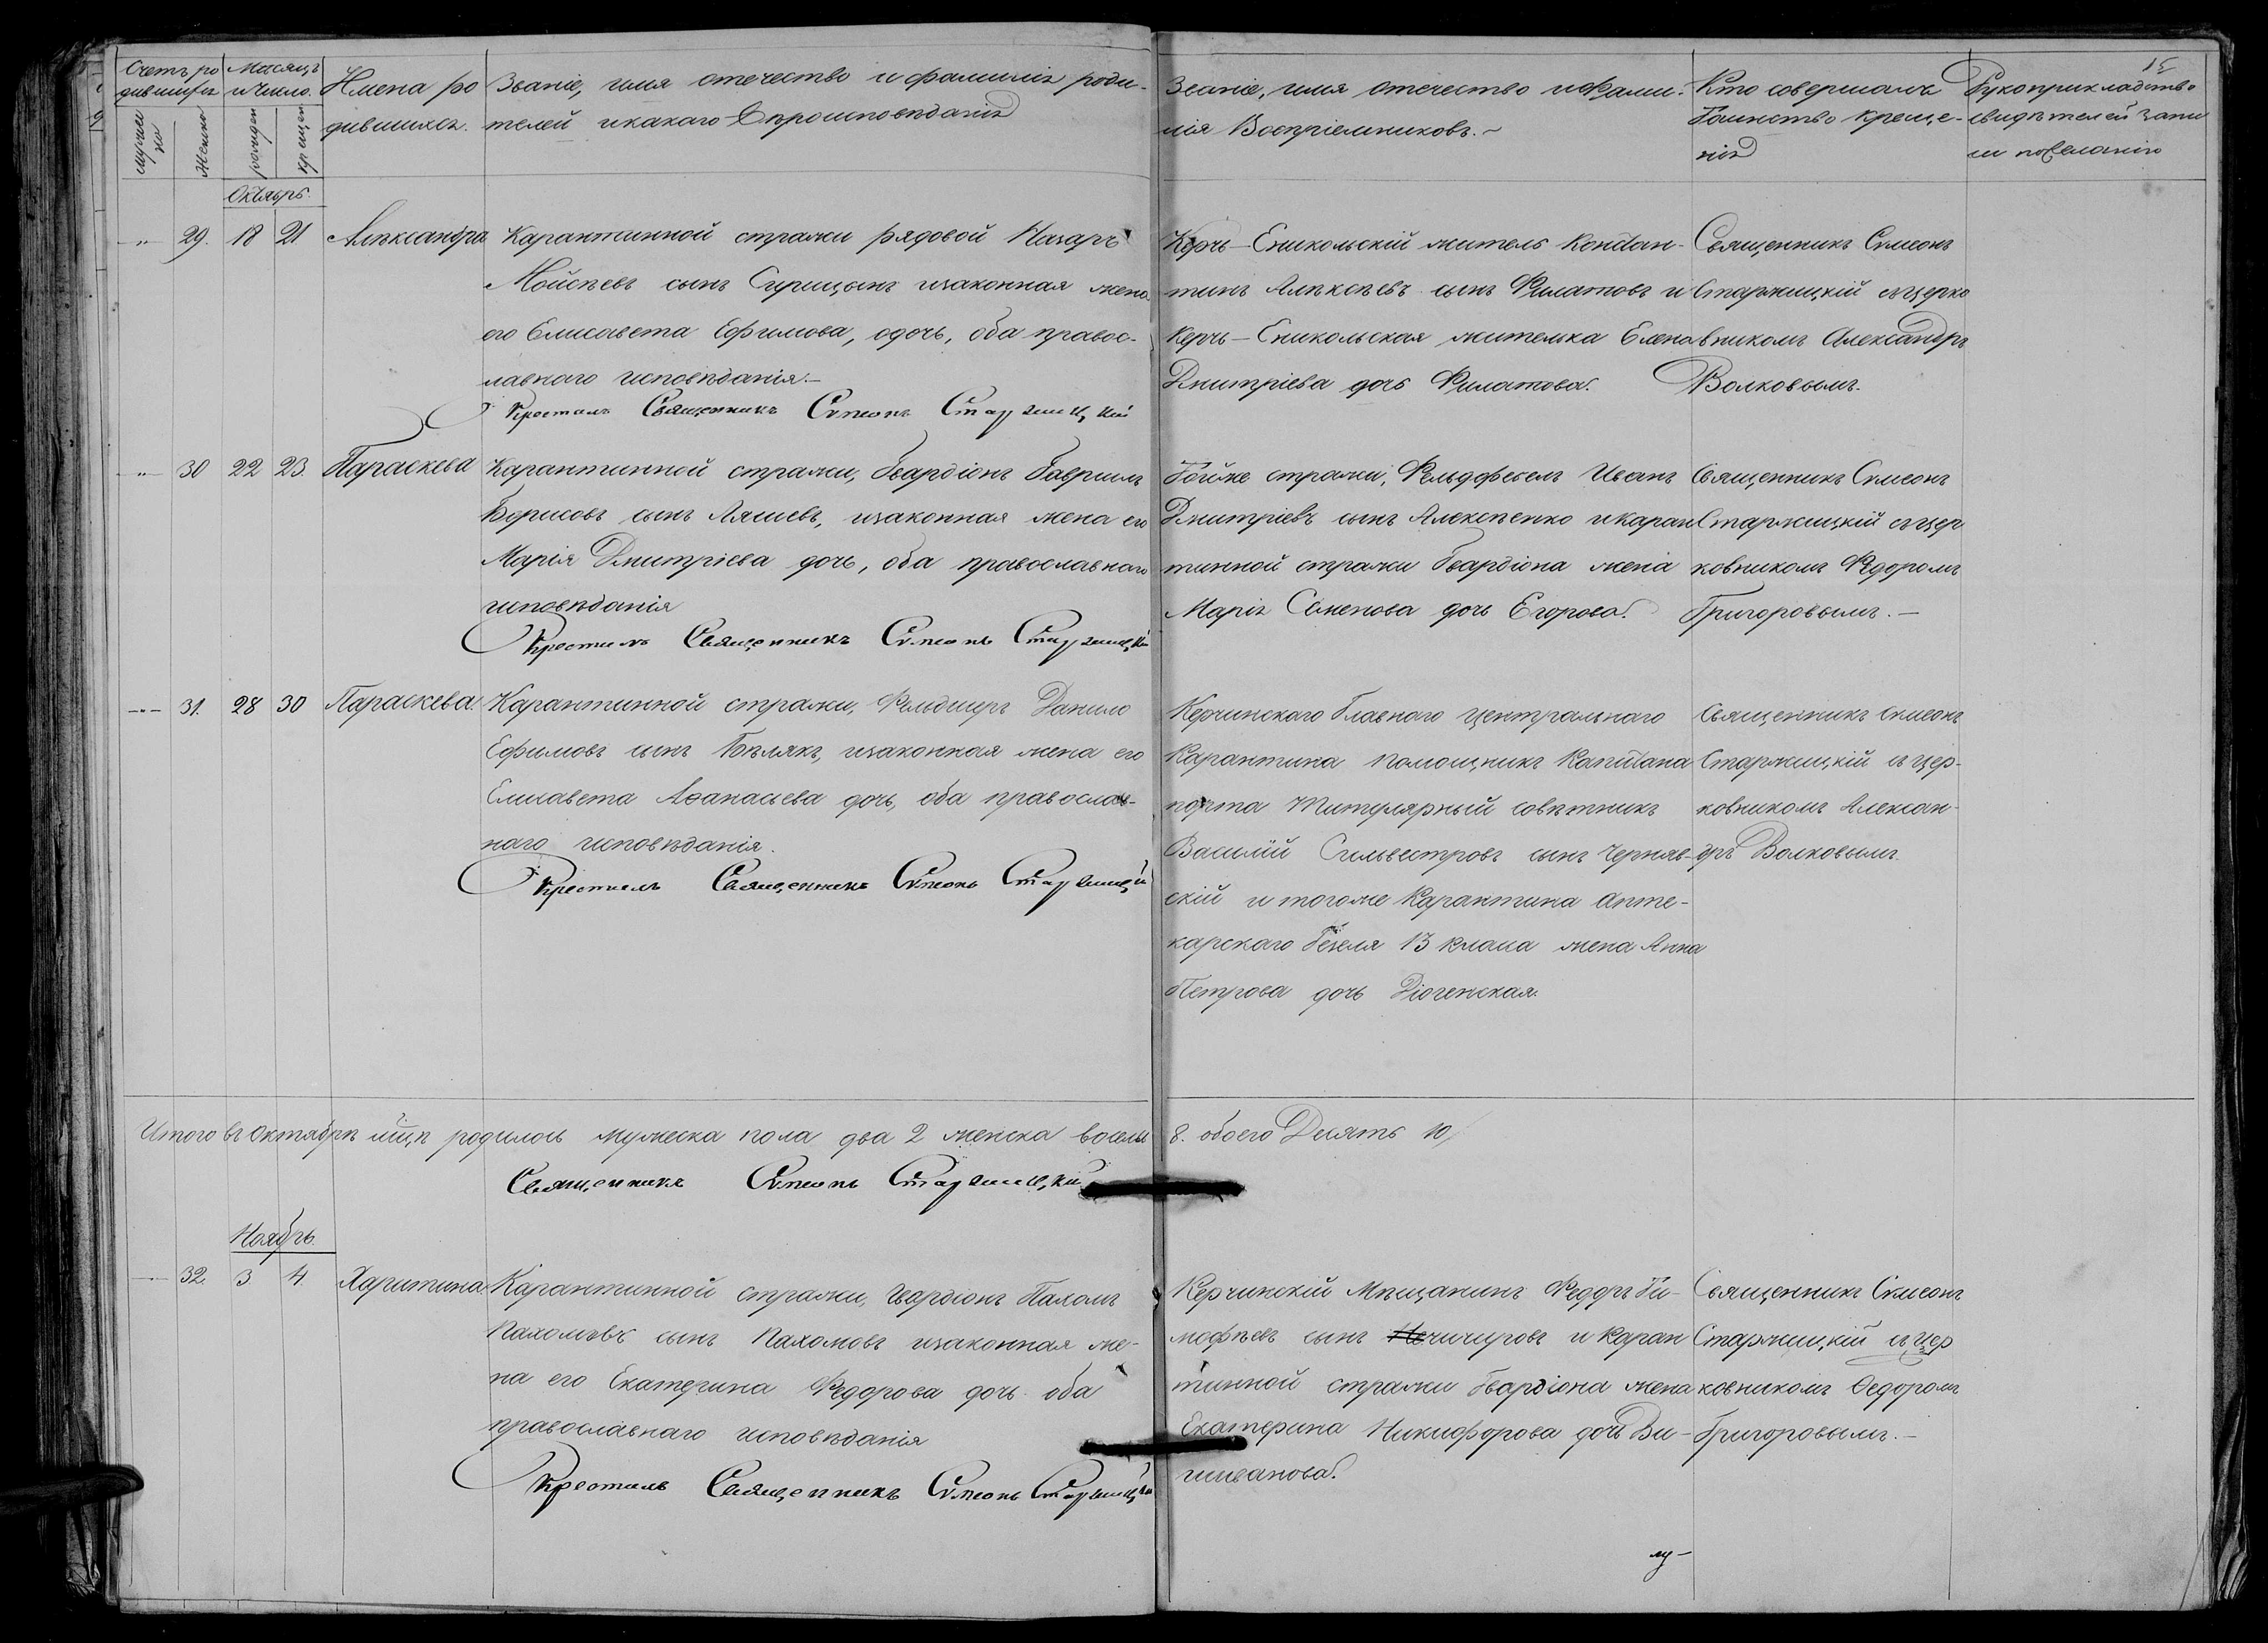 Счетъ ро
дившихся
Мѣсяцъ
и число.
Имена ро
дившихся.
Званіе, имя отечество и фамилія роди-
телей и какаго вѣроисповѣданія
Званіе, имя отечество и Фами-
лія Воспріемниковъ.
Кто совершалъ
Таинство креще-
нія
Рукоприкладство
свидѣтелей запи
си по желанію
15
Женска
рожден
крещен
Октябрь.
29. 18 21 Александра
Карантинной стражи рядовой Назаръ
Мойсѣевъ сынъ Сурицынъ изаконная жена
его Елисавета Ефимова, дочь, оба правос-
лавнаго исповѣданія.—
Крестилъ Священникъ Сѵмеонъ Старжицкій
Керчь-Еникольскій житель Констан-
тинъ Алексѣевъ сынъ Филатовъ и
Керчь-Еникольская жителька Елена
Дмитріева дочь Филатова.
Священникъ Сѵмеонъ
Старжицкій съцерко
вникомъ Александръ
Волковымъ.
30 22 23. Параскева
Карантинной стражи, Гвардіонъ Гавріилъ
Борисовъ сынъ Ляшевъ, изаконная жена его
Марія Дмитріева дочь, оба православнаго
исповѣданія
Крестилъ Священникъ Сѵмеонъ Старжицкій
Тойже стражи, Фельдфебель Иванъ
Дмитріевъ сынъ Алексѣенко и каран
тинной стражи Гвардіона жена
Марія Семенова дочь Егорова.
Священникъ Сѵмеонъ
Старжицкій съцер
ковникомъ Федоромъ
Григоровымъ.—
31. 28 30 Параскева.
Карантинной стражи, Фельдшеръ Данило
Ефимовъ сынъ Бѣлякъ, изаконная жена его
Елисавета Аѳанасьева дочь, оба православ-
наго исповѣданія.
Крестилъ Священникъ Сѵмеонъ Старжицкій
Керчинскаго Главнаго Центральнаго
Карантина помощникъ Капитана
порта Титулярный совѣтникъ
Василій Сильвестровъ сынъ Черняв-
скій и тогоже Карантина апте-
карскаго Гезеля 13 класа жена Анна
Петрова дочь Діогенская.
Священникъ Сѵмеонъ
Старжицкій съцер-
ковникомъ Алексан-
дръ Волковымъ.
Итого въ Октябрѣ мцѣ родилось мужеска пола два 2 женска восемь 8. обоего Десять 10
Священникъ Сѵмеонъ Старжицкій
Ноябрь.
32. 3 4. Харитина
Карантинной стражи, Гвардіонъ Пахомъ
Пахомовъ сынъ Пахомовъ изаконная же-
на его Екатерина Федорова дочь оба
православнаго исповѣданія
Крестилъ Священникъ Сѵмеонъ Старжицкій
Керчинскій Мѣщанинъ Федоръ Ти-
мофѣевъ сынъ Нечичировъ и каран
тинной стражи Гвардіона жена
Екатерина Никифорова дочь Ви-
Священникъ Сѵмеонъ
Старжицкій съцер
ковникомъ Ѳедоромъ
Григоровымъ.—